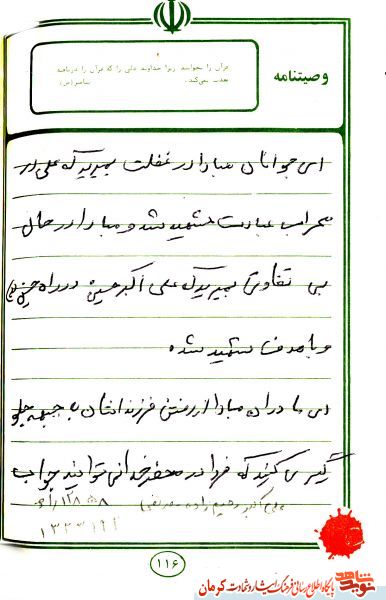 وصیتنامه
قرآن را بخوانید زیرا خداوند قلبی را که قرآن را دریافته
عذب نمی‌کند. پیامبر(ص)
ای جوانان مبادا در غفلت بمیرید که علی در
محراب عبادت شهید شد و مبادا در حال
بی تفاوتی بمیرید که علی اکبر حسین در راه حسین
و با هدف شهید شد.
ای مادران مبادا از رفتن فرزندانتان به جبهه جلو
گیری کنید که فردا در محضر خدا نمی توانید جواب
علی اکبر رحیم زاده
۱۱۶
پایگاه اطلاع رسانی فرهنگ ایثار و شهادت کرمان
نوید شاهد